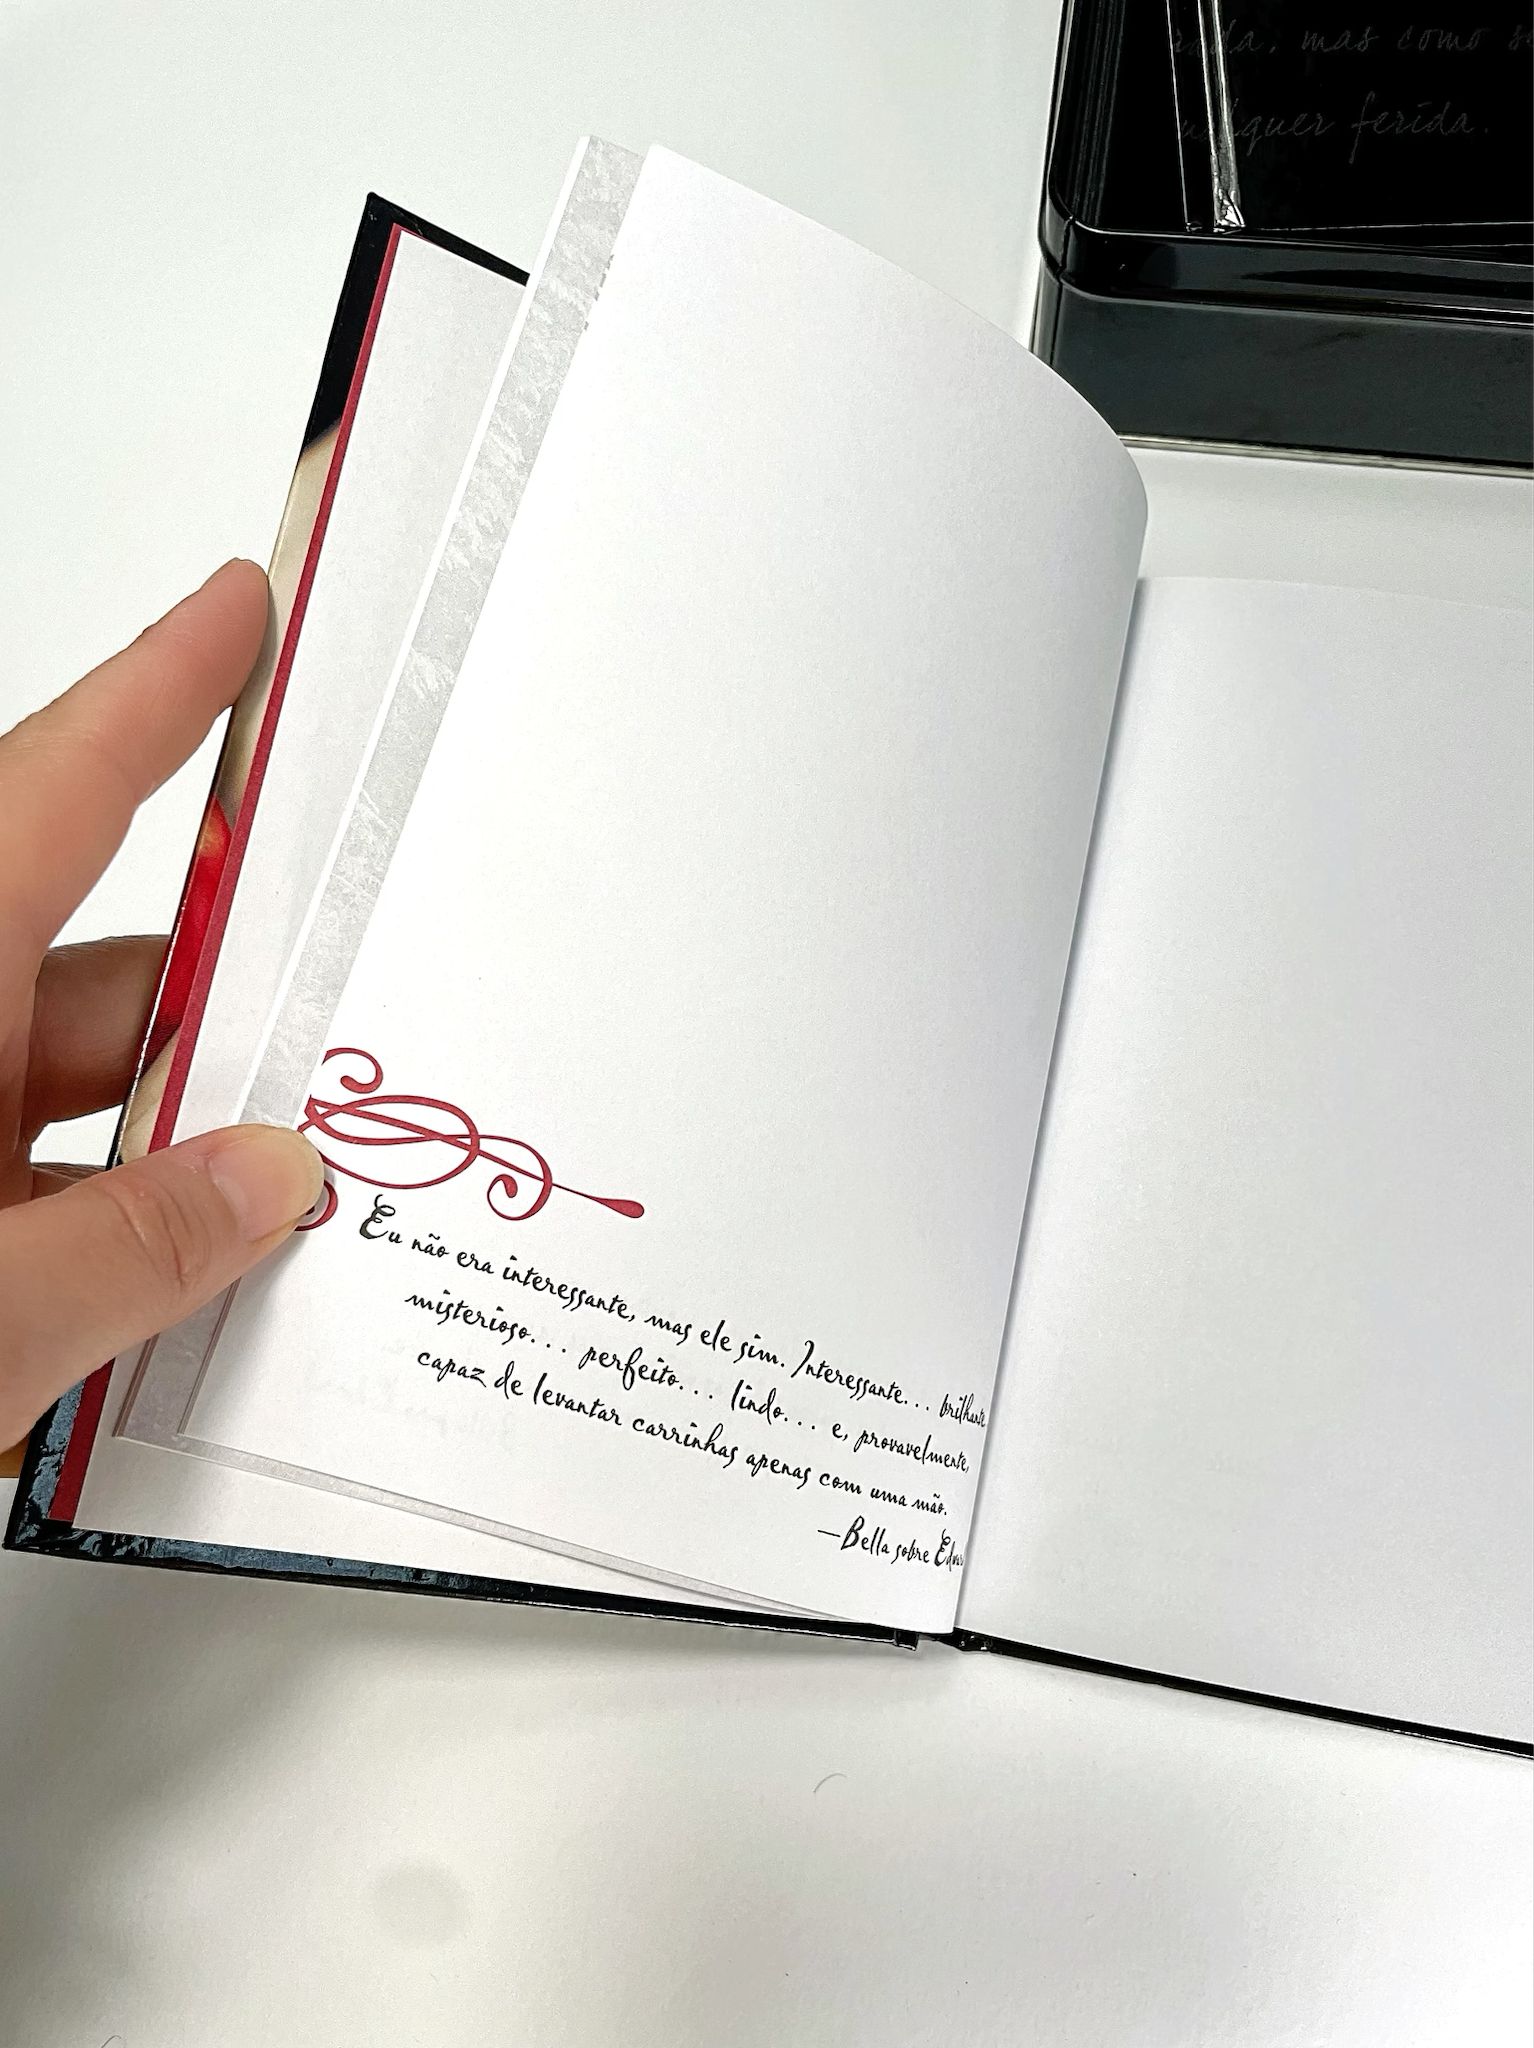 mas como
ferida.
Eu não era interessante, mas ele sim. Interessante... brilhante
misterioso... perfeito... lindo... e, provavelmente,
capaz de levantar carrinhas apenas com uma mão.
—Bella sobre